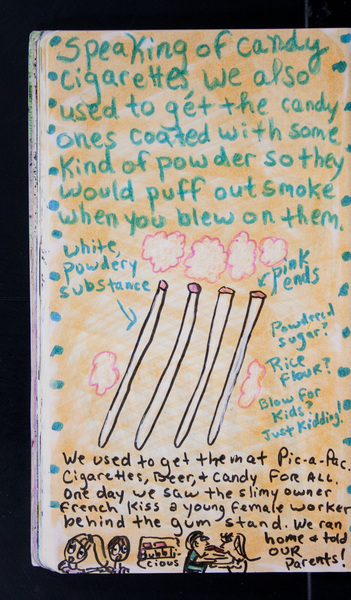 Speaking of candy
cigarettes we also
used to get the candy
ones coated with some
kind of powder so they
would puff out smoke
when you blew on them.
white,
powdery
substance
pink
ends
Powdered
sugar?
Rice
Flour?
Blow for
Kids?
Just Kidding!
We used to get them at Pic-a-Pac.
Cigarettes, Beer, & Candy FOR ALL.
One day we saw the slimy owner
French Kiss a young female worker
behind the gum stand. We ran
home & told
OUR
Parents!
Bubbli-
cious